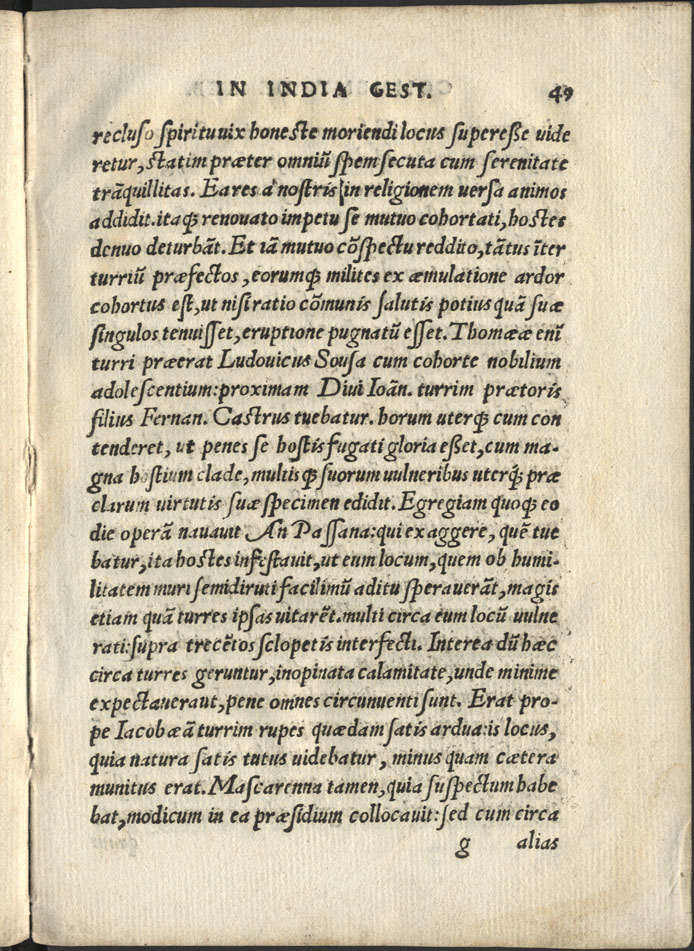 IN INDIA GEST. 49
recluso spiritu uix honeste moriendi locus superesse uide
retur, statim præter omniũ spem secuta cum serenitate
trãquillitas. Ea res a' nostris in religionem uersa animos
addidit. itaq; renouato impetu se mutuo cohortati, hostes
denuo deturbãt. Et iã mutuo cõspectu reddito, tãtus ĩter
turriũ præfectos, eorumq; milites ex æmulatione ardor
cohortus est, ut nisi ratio cõmunis salutis potius quã suæ
singulos tenuisset, eruptione pugnatũ esset. Thomææ enĩ
turri præerat Ludouicus Sousa cum cohorte nobilium
adolescentium: proximam Diui Ioãn. turrim prætoris
filius Fernan. Castrus tuebatur. horum uterq; cum con
tenderet, ut penes se hostis fugati gloria esset, cum ma-
gna hostium clade, multisq; suorum uulneribus uterq; præ
clarum uirtutis suæ specimen edidit. Egregiam quoq; eo
die operã nauauit An Passana: qui ex aggere, quẽ tue
batur, ita hostes infestauit, ut eum locum, quem ob humi-
litatem muri semidiruti facilimũ aditu sperauerãt, magis
etiam quã turres ipsas uitarẽt. multi circa eum locũ uulne
rati: supra trecẽtos sclopetis interfecti. Interea dũ hæc
circa turres geruntur, inopinata calamitate, unde minime
expectaueraut, pene omnes circunuenti sunt. Erat pro-
pe Iacobæã turrim rupes quædam satis ardua: is locus,
quia natura satis tutus uidebatur, minus quam cætera
munitus erat. Mascarenna tamen, quia suspectum habe
bat, modicum in ea præsidium collocauit: sed cum circa
g alias